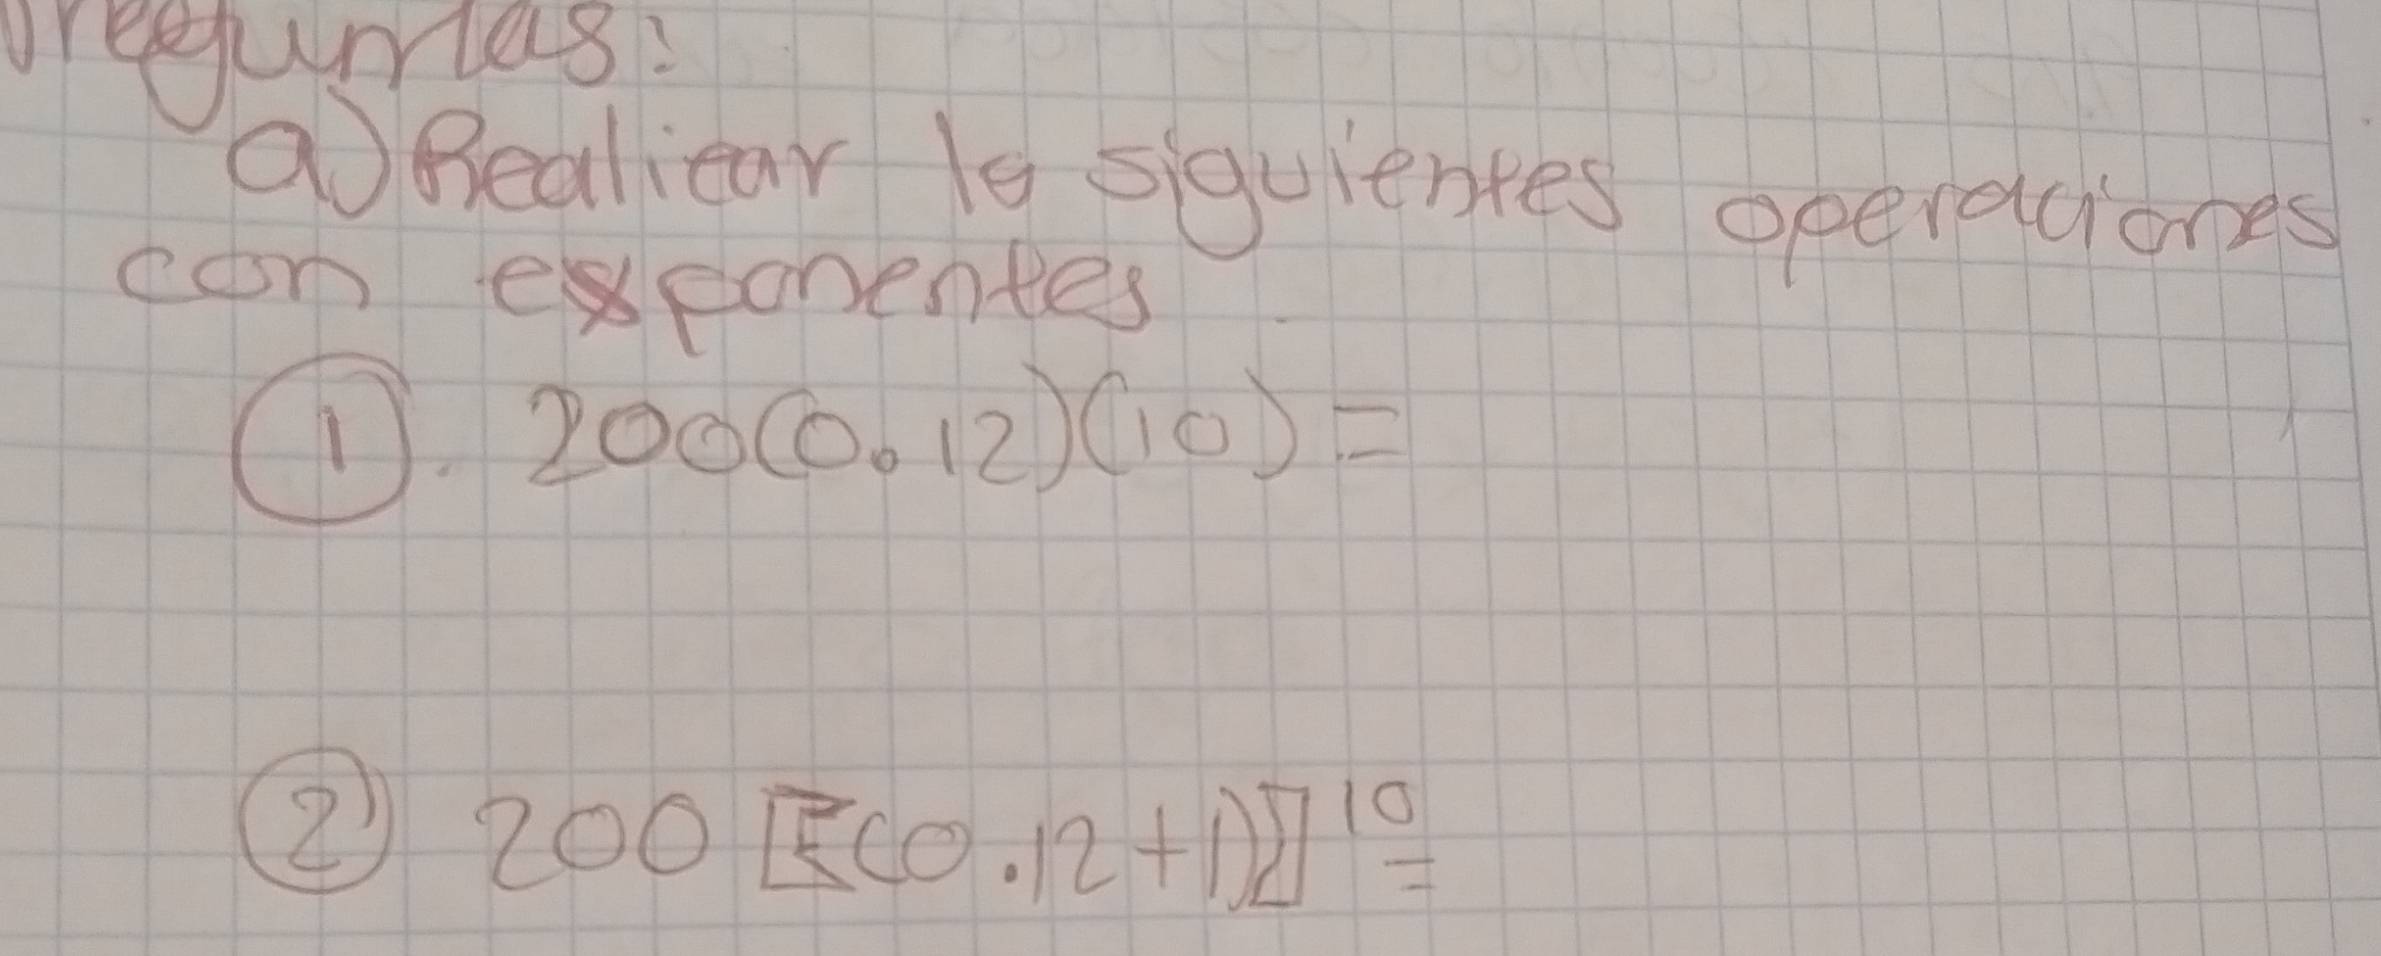 Preguntas:
a) Realizar la siguientes operaciones
con exponentes
①. 200(0.12)(10)=
② 200 [(0.12+1)]¹⁰=